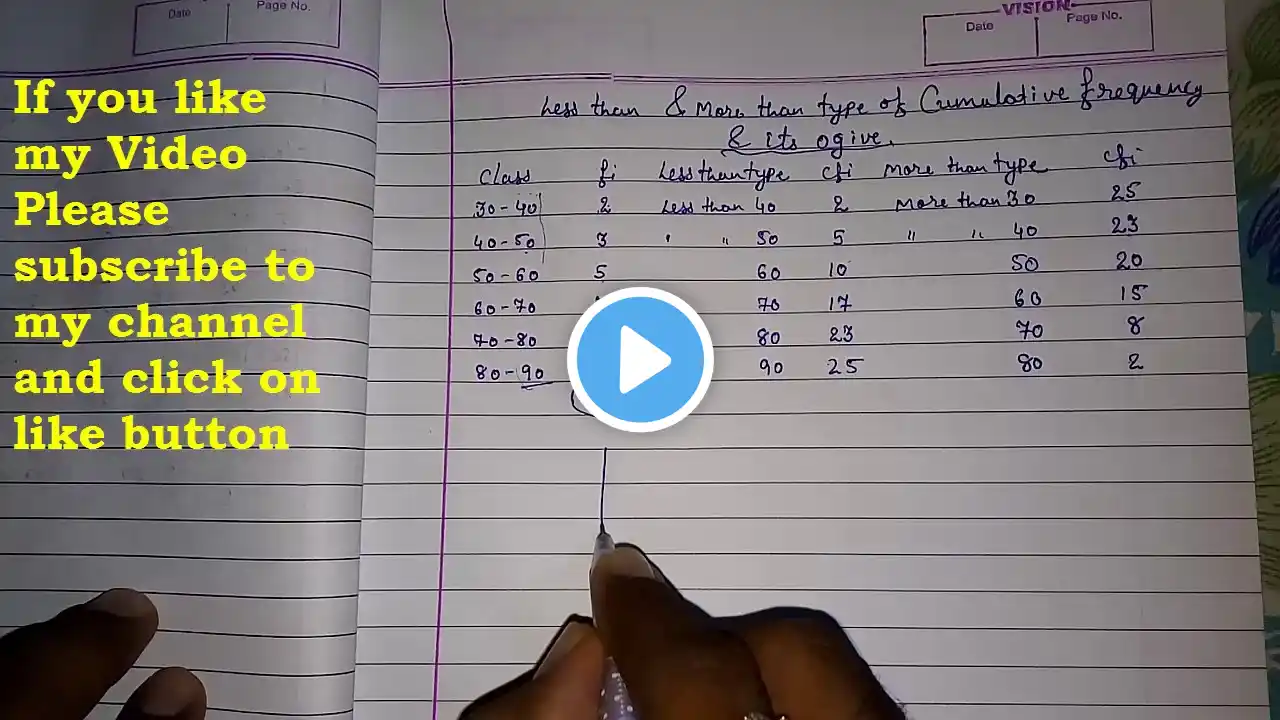 Date
Page No.
VISION
Date
Page No.
If you like
my Video
Please
subscribe to
my channel
and click on
like button
Less than & More than type of Cumulative frequency
& its ogive.
Class fi Less than type cfi More than type cfi
30-40 2 Less than 40 2 More than 30 25
40-50 3 " " 50 5 " " 40 23
50-60 5 60 10 50 20
60-70 70 17 60 15
70-80 80 23 70 8
80-90 90 25 80 2